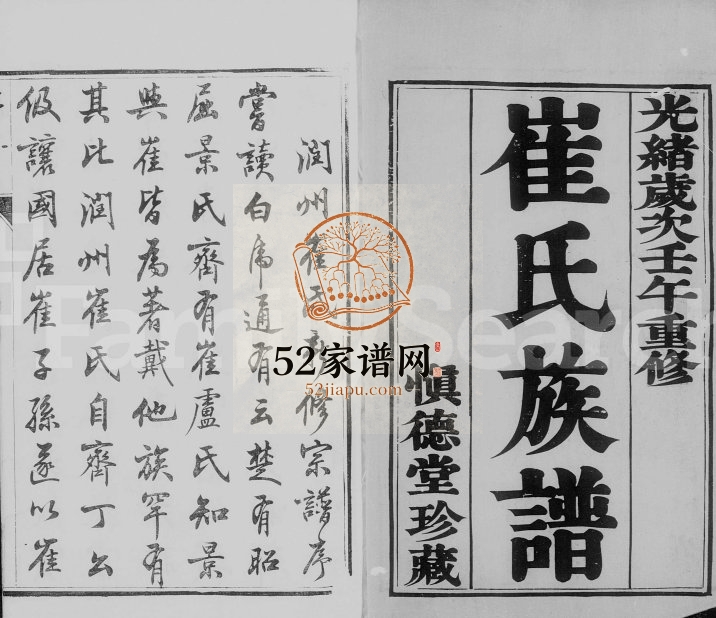 光緒歲次壬午重修
崔氏族譜
慎德堂珍藏
潤州崔氏 修宗譜序
嘗讀白虎通有云楚有昭
屈景氏齊有崔盧氏知景
與崔皆為著戴他族罕有
其比潤州崔氏自齊丁公
伋讓國居崔子孫遂以崔
52家谱网
52jiapu.com
FamilySearch